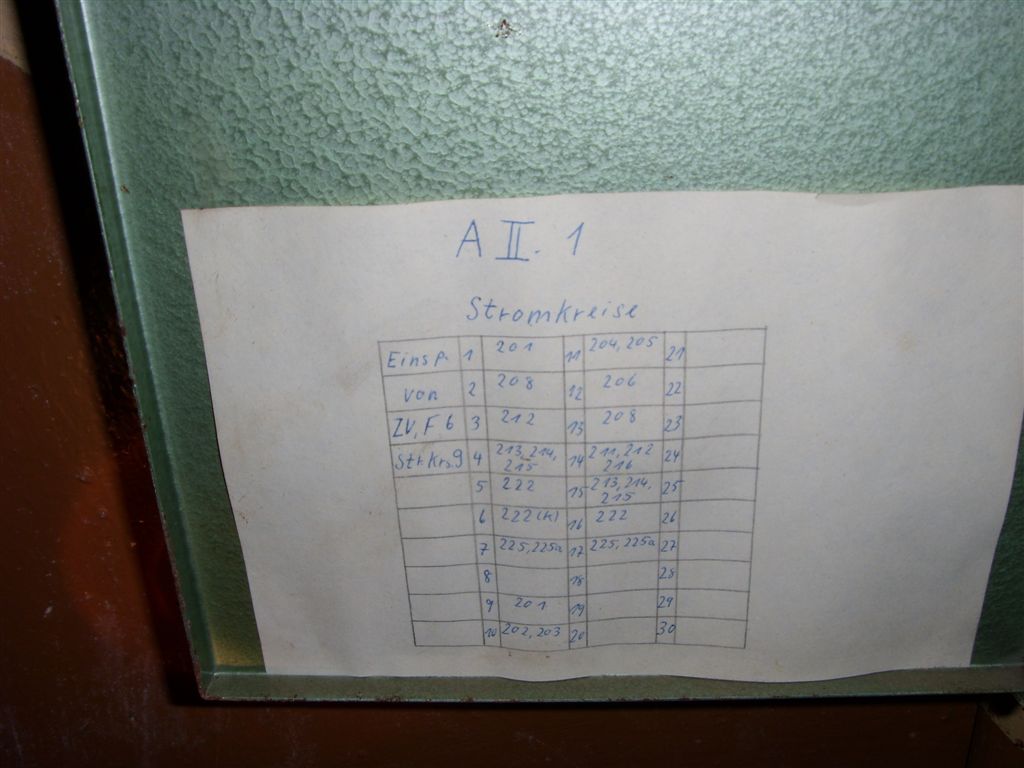 A II. 1
Stromkreise
Einsp. 1 201 11 204, 205 21
von 2 208 12 206 22
ZV, F6 3 212 13 208 23
Str.Krs.9 4 213, 214, 215 14 211, 212 216 24
5 222 15 213, 214, 215 25
6 222 (K) 16 222 26
7 225, 225a 17 225, 225a 27
8 18 28
9 201 19 29
10 202, 203 20 30